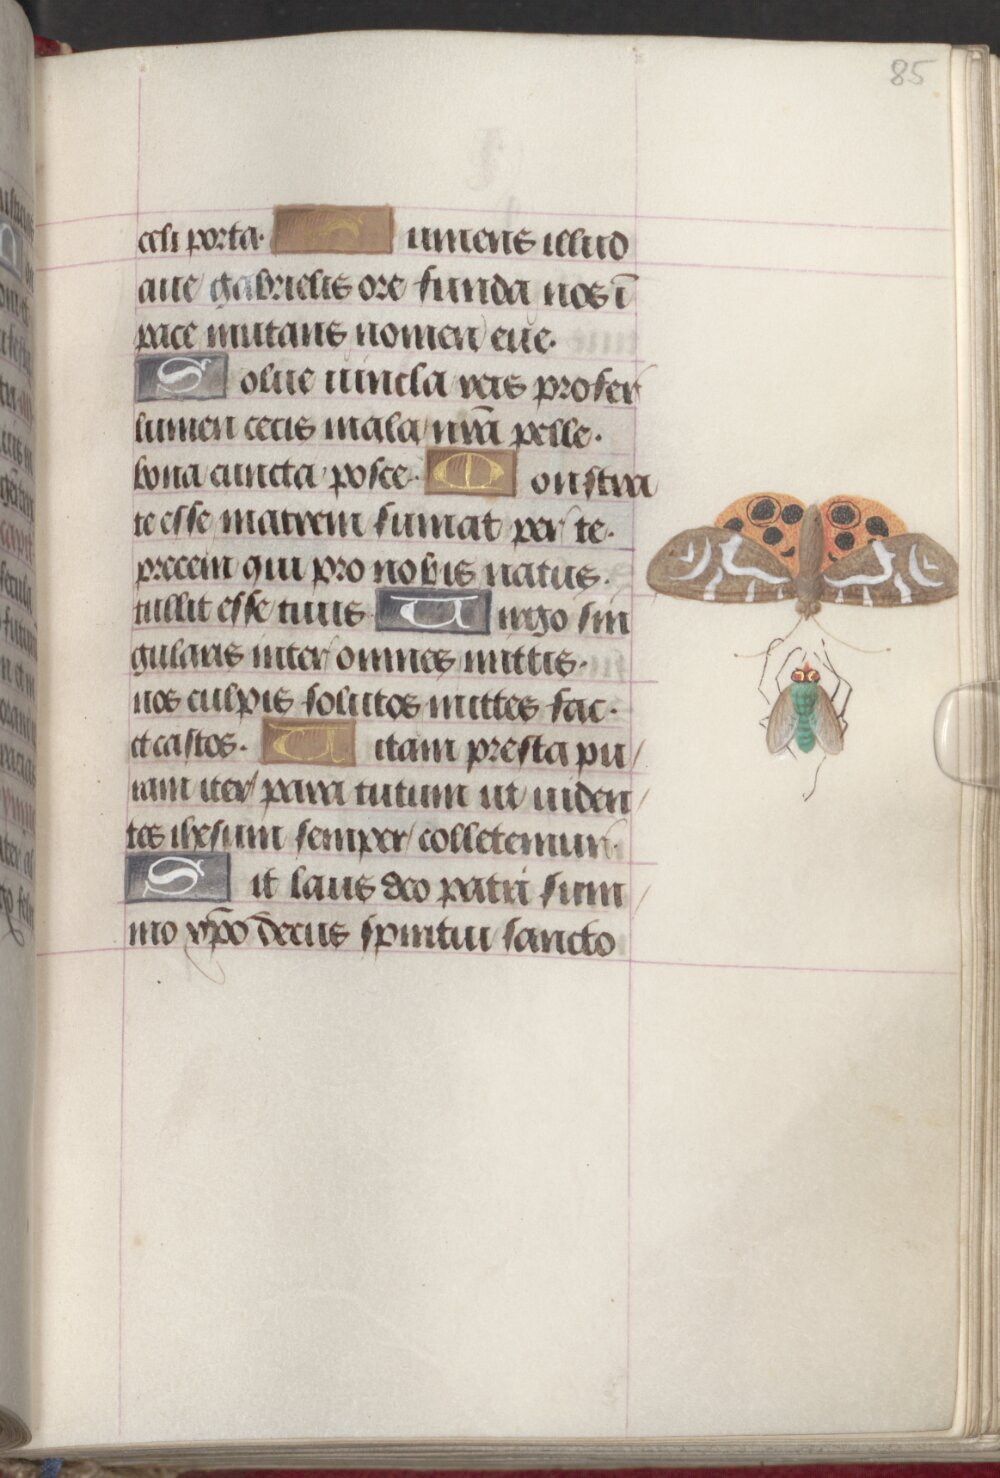 85
celi porta. umens illud
aue gabrielis ore funda nos ī
pace mutans nomen eue.
Solue uincla reis profer
lumen cecis mala nr̄a pelle.
bona cuncta posce. Monstra
te esse matrem sumat per te.
precem qui pro nobis natus.
tullit esse tuus Uirgo sin
gularis inter omnes mittis.
nos culpis solutos mittes fac.
et castos. Uitam presta pu/
ram iter para tutum ut uiden/
tes ihesum semper colletemur.
Sit laus deo patri sum/
mo xp̄o decus spiritui sancto